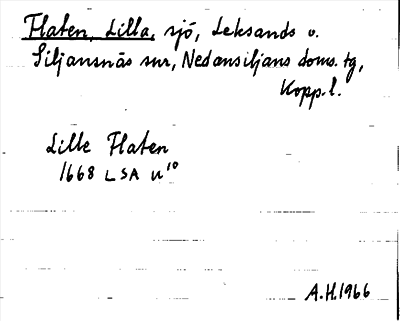 Flaten, Lilla, sjö, Leksands o.
Siljansnäs snr, Nedansiljans doms. tg,
Kopp. l.
Lille Flaten
1668 LSA n¹⁰
A.H. 1966